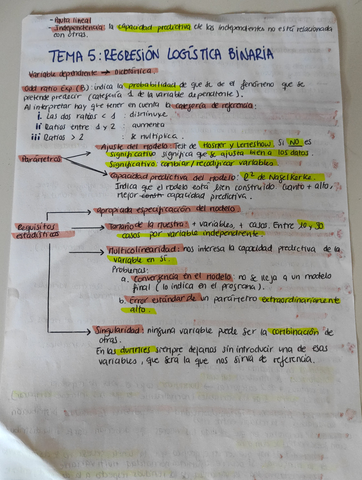 - Pauta lineal
- Independencia: la capacidad predictiva de las independientes no está relacionada
con otras.
TEMA 5: REGRESIÓN LOGÍSTICA BINARIA
Variable dependiente → Dicotómica
Odd ratio Exp.(B): indica la probabilidad de que se de el fenómeno que se
pretende predecir (categoría 1 de la variable dependiente).
Al interpretar hay que tener en cuenta la categoría de referencia:
i. Las dos ratios < 1 : disminuye
ii Ratios entre 1 y 2 : aumenta
iii Ratios > 2 : se multiplica.
Ajuste del modelo: Test de Hosner y Lemeshow. Si NO es
significativo significa que se ajusta bien a los datos.
Significativo: cambiar/recodificar variables.
Parámetros
Capacidad predictiva del modelo: R² de Nagelkerke.
Indica que el modelo está bien construido. Cuanto + alto,
mejor capacidad predictiva.
Apropiada especificación del modelo
Requisitos
estadísticos
Tamaño de la muestra: + variables, + casos. Entre 10 y 30
casos por variable independiente.
Multicolinearidad: nos interesa la capacidad predictiva de la
variable en sí.
Problemas:
a. Convergencia en el modelo: no se llega a un modelo
final (lo indica en el programa).
b. Error estándar de un parámetro extraordinariamente
alto.
Singularidad: ninguna variable puede ser la combinación de
otras.
En las dummies siempre dejamos sin introducir una de esas
variables, que será la que nos sirva de referencia.